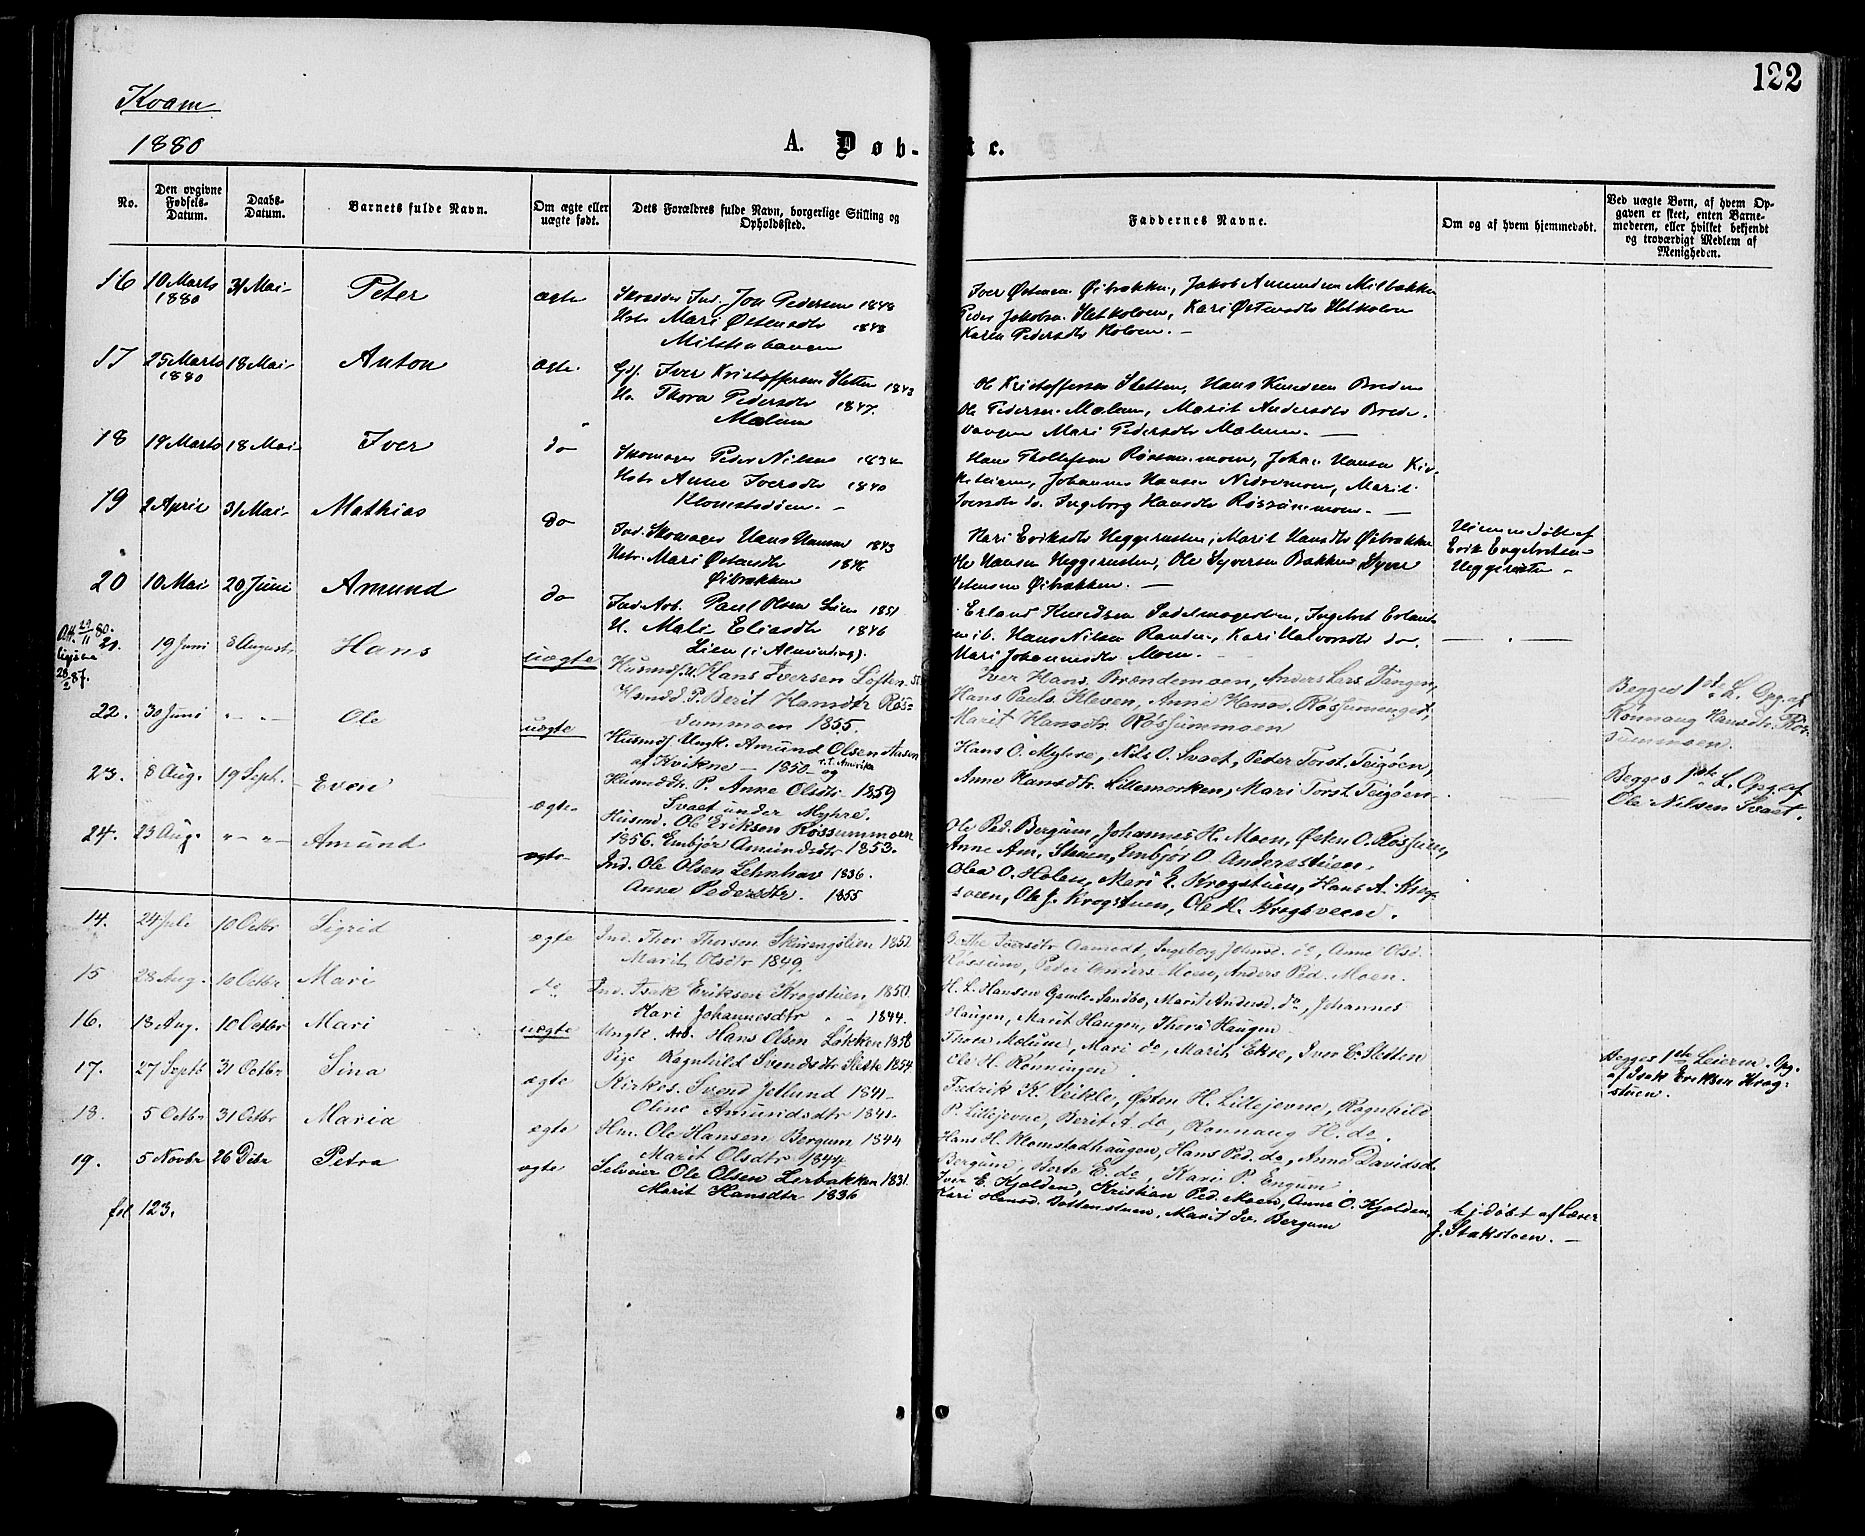 122
Kvam
1880
A. Døb- te.
No.
Den opgivne Fødsels-Datum.
Daabs-Datum.
Barnets fulde Navn.
Om ægte eller uægte født.
Dets Forældres fulde Navn, borgerlige Stilling og Opholdssted.
Faddernes Navne.
Om og af hvem hjemmedøbt.
Ved uægte Børn, af hvem Opgaven er skeet, enten Barnemoderen, eller hvilket bekjendt og troværdigt Medlem af Menigheden.
16 10 Marts 1880 31 Mai Peter ægte
Ind. Jon Pedersen 1848
Hstr Mari Østensdtr 1848
Iver Østensen Øibrækken, Jakob Amundsen
Peder Jakobsen Sletholen, Kari Østensdtr Sletholen
Karen Pedersdtr Holen. —
17 25 Marts 1880 18 Mai Anton ægte.
Gdf. Iver Kristoffersen Sletten 1843
Hu. Thora Pedersdtr 1847.
Mælum
Ole Kristoffersen Sletten, Hans Knudsen Breden
Ole Pedersen Mælum, Marit Andersdtr Brede-
vangen Mari Pedersdtr Mælum. —
18 19 Marts 18 Mai Iver do
Skomager Peder Nilsen 1834
Hstr Anne Iversdtr 1840
Hans Thollefsen, Johan Hansen
Johannes Hansen Nedremoen, Marit
Iversdtr do. Ingeborg Hansdtr Røssummoen. —
19 2 April 31 Mai Mathias do
Ind. Skomager Hans Hansen 1843
Hstr. Mari Østensdtr 1846
Øibrækken
Kari Eriksdtr Heggerusten, Marit Hansdtr Øibrækken
Ole Hansen Heggerusten, Ole Syversen Bakken Syver
Østensen Øibrækken. —
Hjemmedøbt af
Erik Engebretsen
Heggerusten —
20 10 Mai 20 Juni Amund do
Ind. Arb. Paul Olsen Lien 1851
H. Mali Eliasdtr 1846
Lien (i Almindingen).
Erland Knudsen, Ingebret Erlandsen
ib. Hans Nilsen Randen, Kari Halvorsdtr do.
Mari Johannesdtr Moen. —
Att. 29/11 80.
28/2 87.
21. 19 Juni 8 August Hans uægte
Husmdf. U. Hans Iversen Loften
Husmdd. P. Berit Hansdtr Røs-
summoen 1855.
Iver Hans. Brændemoen, Anders Lars. Tangen,
Hans Pauls. Kleven, Anne Hansd. Røssumenget,
Marit Hansdtr. Røssummoen
Begges 1ste L. Opg. af
Rønnaug Hansdtr. Røs-
summoen.
22. 30 Juni " " Ole uægte
Husmdf. Ungk. Amund Olsen Aasen
af Kvikne — 1850 — og
r. t. Amerika
Husmddtr. P. Anne Olsdtr 1859
Svaet under Myhre.
Hans O. Myhre, Nils O. Svaet, Peder Torst. Teigøen,
Anne Hansdtr. Lillemorken, Mari Torst. Teigøen.
Begges 1ste L. Opg. af
Ole Nilsen Svaet.
23. 8 Aug. 19 Sept. Even ægte
Husmd. Ole Eriksen Røssummoen
1856. Embjør Amundsdtr 1853.
Ole Ped. Bergum, Johannes H. Moen, Østen O. Røssum,
Anne Am. Stuen, Embjør O. Anderstuen.
24. 23 Aug. " " Amund ægte
Ind. Ole Olsen Lehnhav 1836.
Anne Pedersdtr. 1855
Olea O. Holen, Mari E. Krogstuen, Hans A. Krog-
sveen, Ole J. Krogstuen, Ole H. Kroghsveene.
14. 24 Juli 10 Octbr Sigrid ægte
Ind. Thor Thorsen 1852
Marit Olsdtr 1849.
Berthe Iversdtr Aamodt, Ingeborg Johnsd. do, Anne Olsd.
Røssum, Peder Anders. Moen, Anders Ped. Moen.
15 28 Aug. 10 Octbr Mari do
Ind. Isak Eriksen Krogstuen 1850.
Kari Johannesdtr " " 1844.
H. L. Hansen Gamle-Sandbo, Marit Andersd. do, Johannes
Haugen, Marit Haugen, Thora Haugen
16. 13 Aug. 10 Octbr Mari uægte
Ungk. Arb. Hans Olsen Løkken 1858
Pige Ragnhild Svendsdtr Slette 1854
Thora Melum, Mari do, Marit Ekre, Iver E. Sletten
Ole H. Rønningen.
Begges 1ste Leierm. Opg.
af Isak Eriksen Krog-
stuen.
17. 27 Septb 31 Octbr Sina ægte
Kirkes. Svend Jetlund 1841.
Oline Amundsdtr 1841.
Fredrik K. Veikle, Østen H. Lillejevne, Ragnhild
P. Lillejevne, Berit A. do, Rønnaug H. do.
18. 5 Octbr 31 Octbr Maria ægte
Hm. Ole Hansen Bergum 1844
Marit Olsdtr 1844.
Hans H. Klomstadhaugen, Hans Ped. do, Anne Davidsd.
Bergum, Berte E. do, Kari P. Engum.
19. 5 Novbr 26 Dcbr Petra ægte
Selveier Ole Olsen Lerbakken 1831.
Marit Hansdtr 1836
Iver E. Kjolden, Kristian Ped. Moen, Anne O. Kjolden,
Kari Hansd. Bottenstuen, Marit Iv. Bergum
hj.døbt af Lærer
J. Stakstoen. —
fol 123.